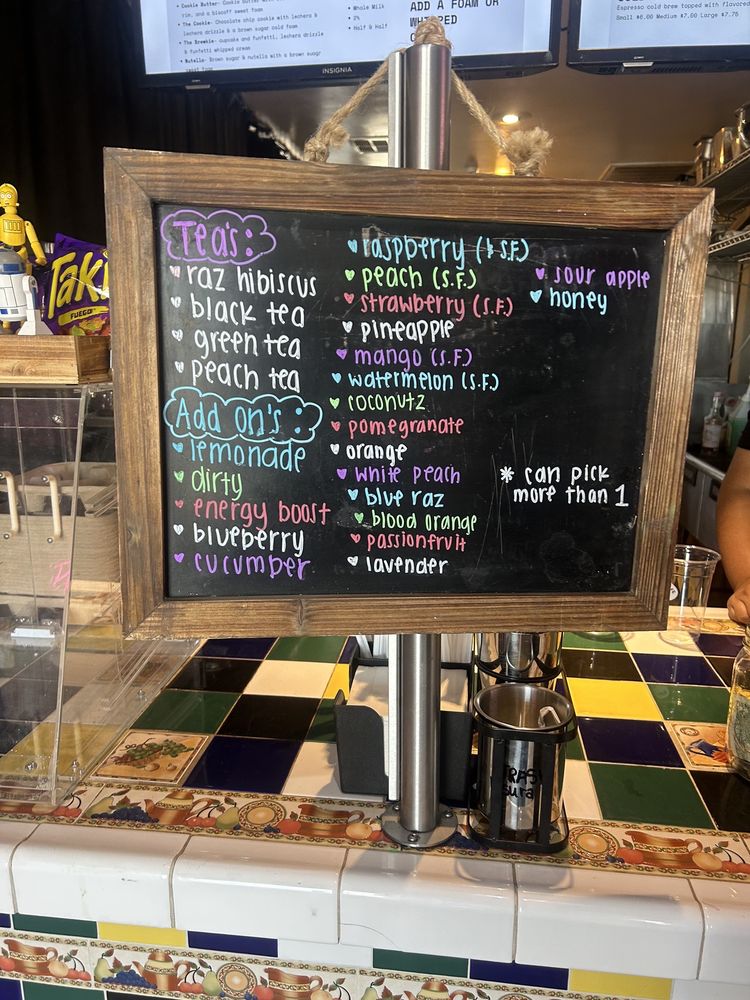 • Cookie Butter- Cookie butter with
rim, and a biscoff sweet foam
• The Cookie- Chocolate chip cookie with lechera &
lechera drizzle & a brown sugar cold foam
• The Brownie- cupcake and funfetti, lechera drizzle
& funfetti whipped cream
• Nutella- Brown sugar & nutella with a brown suagr
sweet foam
• Whole Milk
• 2%
• Half & Half
ADD A FOAM OR
WHIPPED
INSIGNIA
Espresso cold brew topped with flavored
Small $6.00 Medium $7.00 Large $7.75
Tea's:
raz hibiscus
black tea
green tea
peach tea
Add on's:
lemonade
dirty
energy boost
blueberry
cucumber
raspberry (& S.F.)
peach (S.F.)
strawberry (S.F.)
pineapple
mango (S.F.)
watermelon (S.F.)
coconutz
pomegranate
orange
white peach
blue raz
blood orange
passionfruit
lavender
sour apple
honey
* can pick
more than 1
Taki
FUEGO